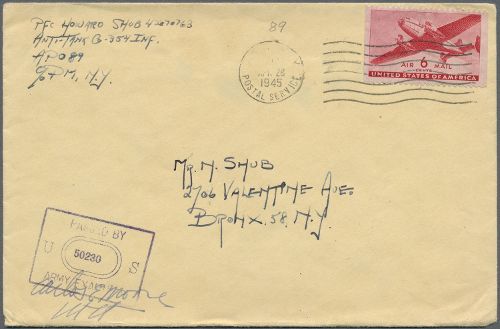 PFC HOWARD SHUB
ANTI-TANK G-354 INF.
APO 89
℅ P.M., N.Y.
89
APR 28
1945
POSTAL SERVICE
AIR 6 MAIL
CENTS
UNITED STATES OF AMERICA
MR. N. SHUB
2706 VALENTINE AVE.
BRONX. 58. N.Y.
PASSED BY
U 50230 S
ARMY EXAMINER